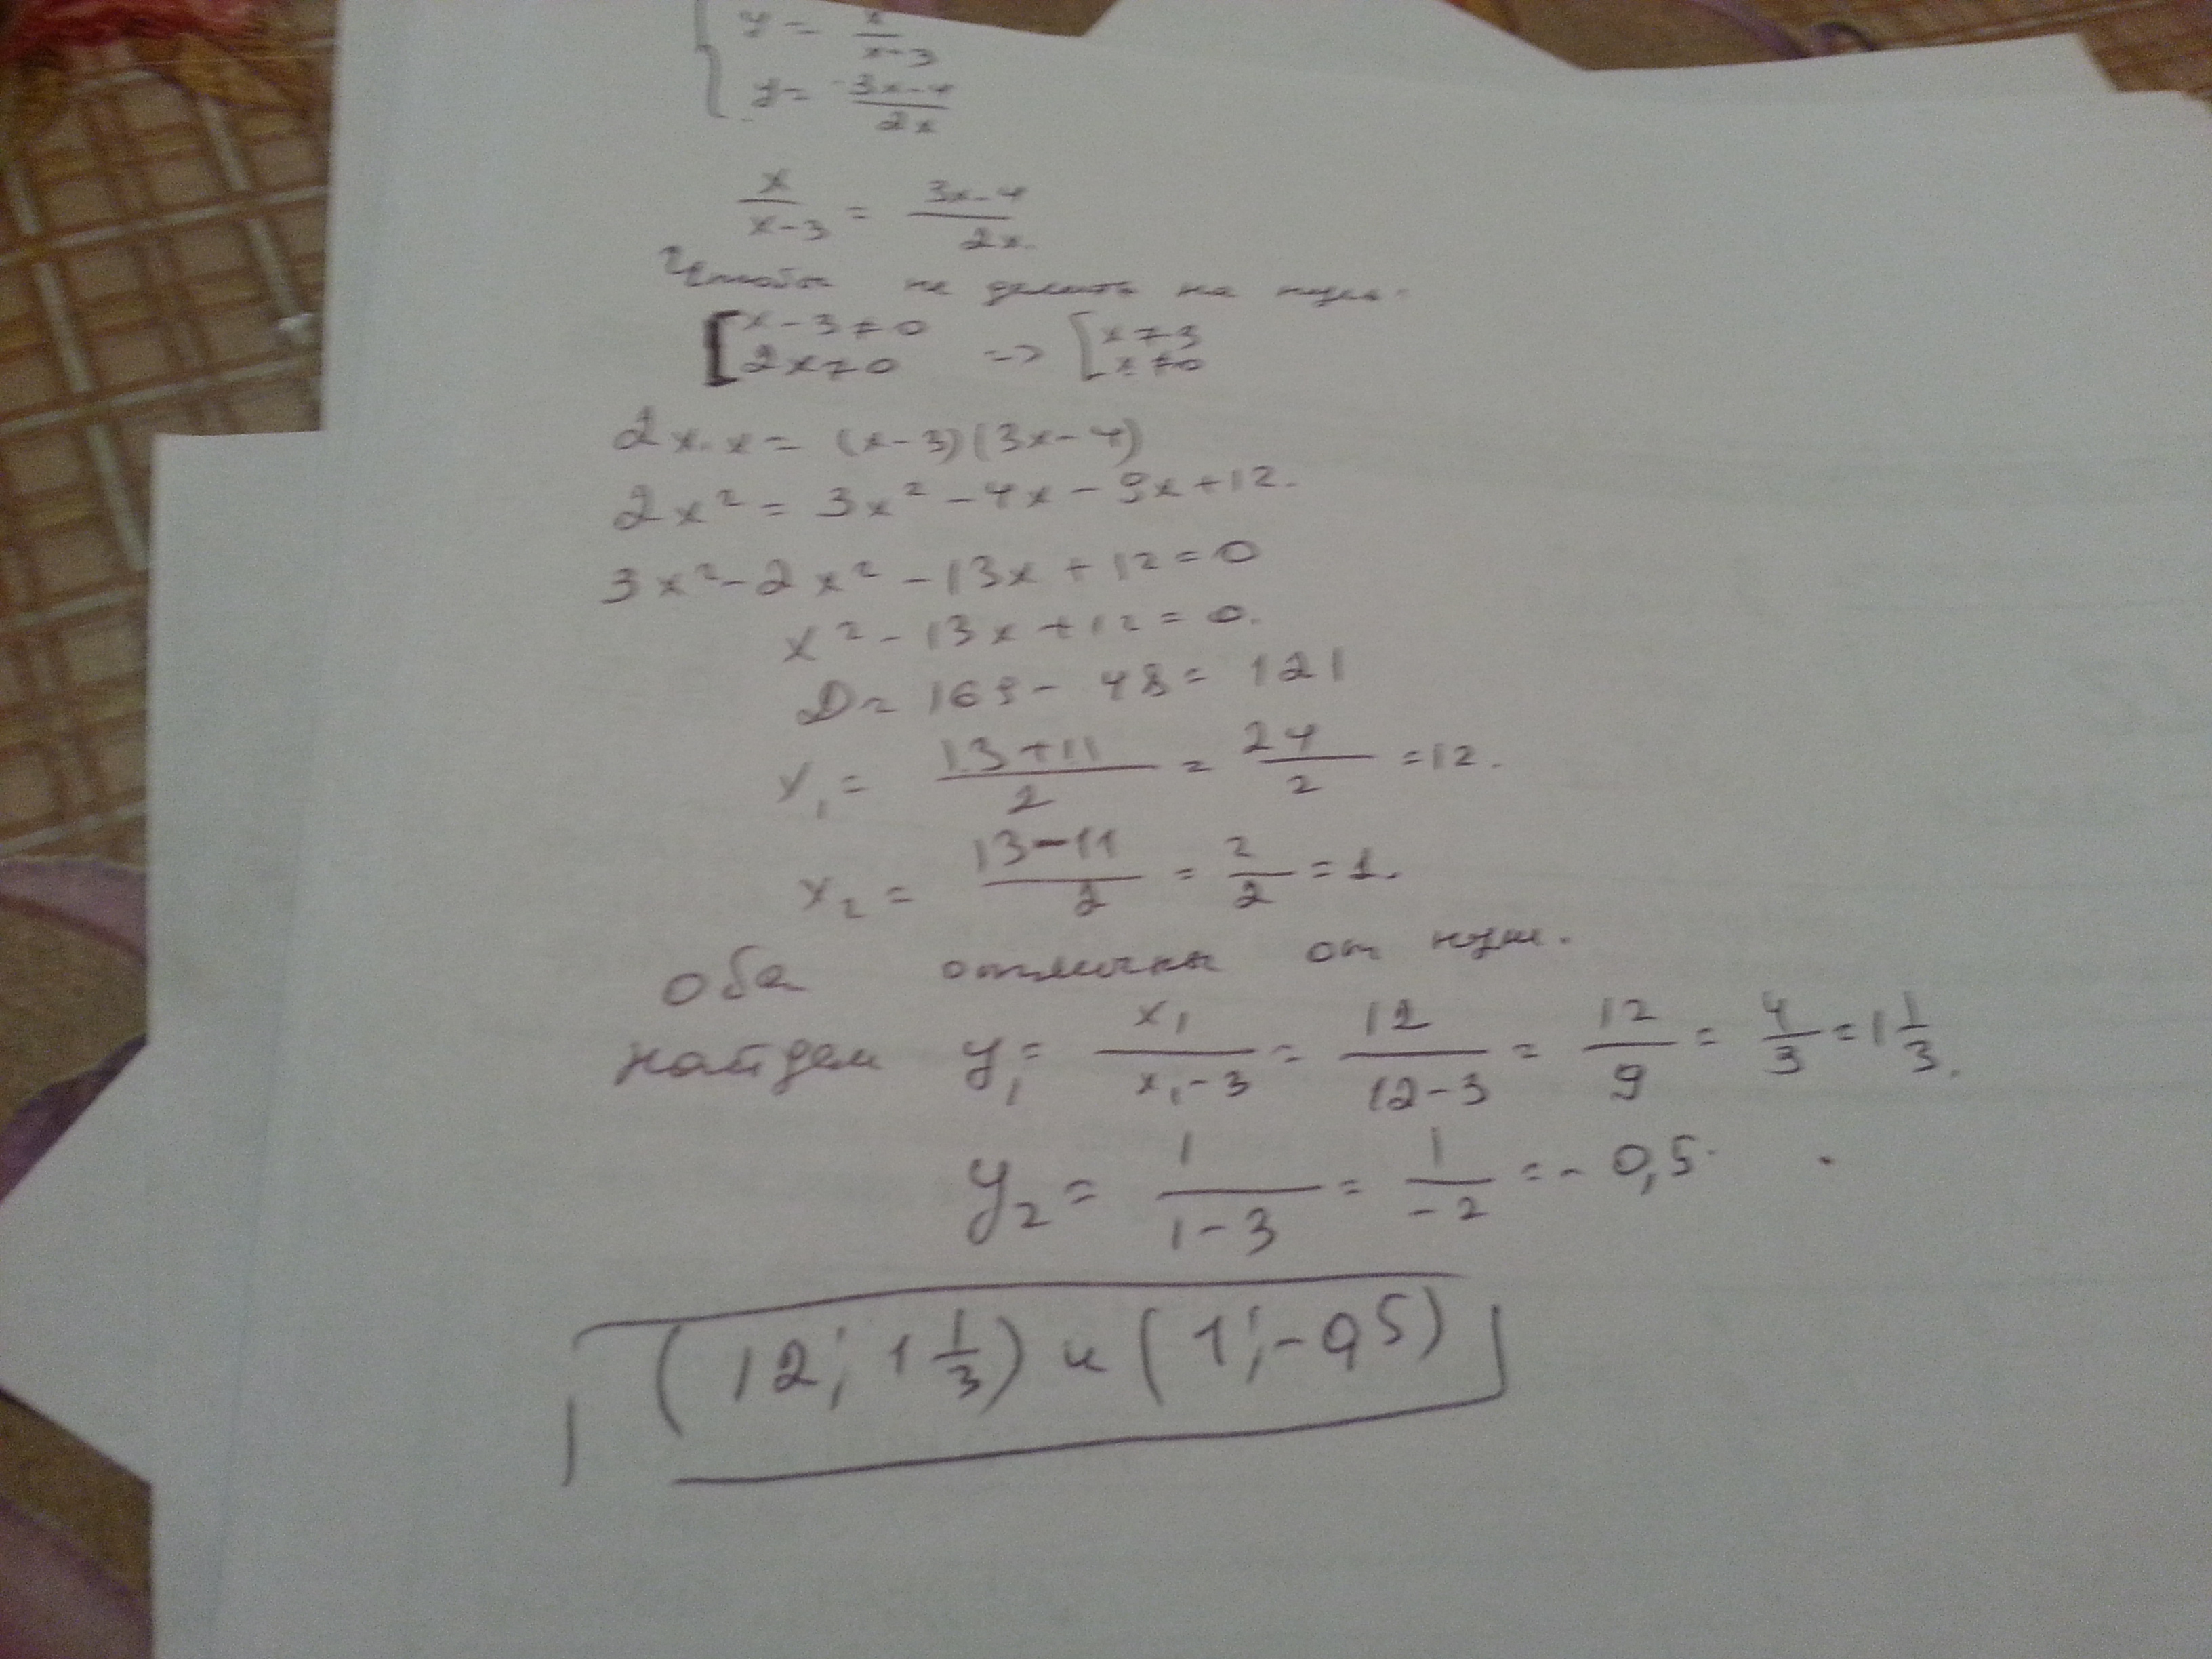 { y = x/(x-3)
y = (3x-4)/(2x)
x/(x-3) = (3x-4)/(2x).
Чтобы не делить на нуль.
[ x-3≠0 2x≠0 => [ x≠3 x≠0
2x·x = (x-3)(3x-4)
2x² = 3x² - 4x - 9x + 12.
3x² - 2x² - 13x + 12 = 0
x² - 13x + 12 = 0.
D = 169 - 48 = 121
x₁ = (13+11)/2 = 24/2 = 12.
x₂ = (13-11)/2 = 2/2 = 1.
Оба отличны от нуля.
найдем y₁ = x₁/(x₁-3) = 12/(12-3) = 12/9 = 4/3 = 1 1/3.
y₂ = 1/(1-3) = 1/(-2) = -0,5.
(12; 1 1/3) и (1; -0,5)